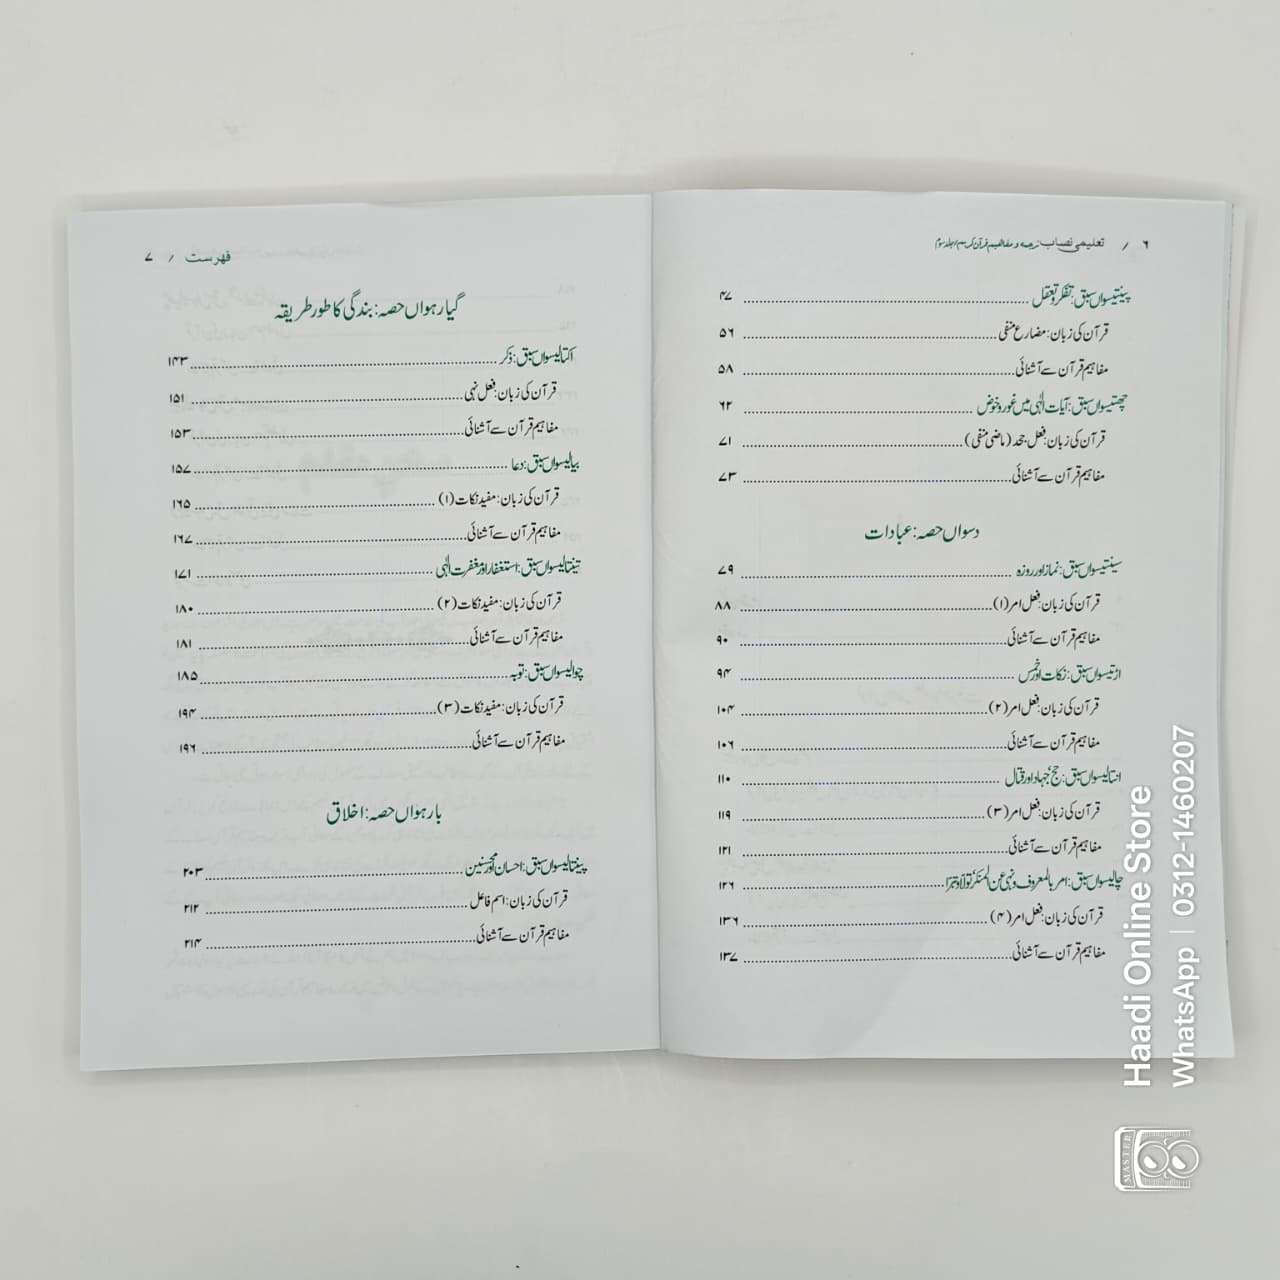 ۶ / تعلیمی نصاب: ترجمہ و مفاہیم قرآن کریم / جلد سوم
پینتیسواں سبق: تفکر و تعقل ۴۷
قرآن کی زبان: مضارع منفی ۵۶
مفاہیم قرآن سے آشنائی ۵۸
چھتیسواں سبق: آیات الٰہی میں غور و خوض ۶۲
قرآن کی زبان: فعل جحد (ماضی منفی) ۷۱
مفاہیم قرآن سے آشنائی ۷۳
دسواں حصہ: عبادات
سینتیسواں سبق: نماز اور روزہ ۷۹
قرآن کی زبان: فعل امر (۱) ۸۸
مفاہیم قرآن سے آشنائی ۹۰
اڑتیسواں سبق: زکات اور خمس ۹۴
قرآن کی زبان: فعل امر (۲) ۱۰۴
مفاہیم قرآن سے آشنائی ۱۰۶
انتالیسواں سبق: حج، جہاد اور قتال ۱۱۰
قرآن کی زبان: فعل امر (۳) ۱۱۹
مفاہیم قرآن سے آشنائی ۱۲۱
چالیسواں سبق: امر بالمعروف و نہی عن المنکر، تولا و تبرا ۱۲۶
قرآن کی زبان: فعل امر (۴) ۱۳۶
مفاہیم قرآن سے آشنائی ۱۳۷
فہرست / ۷
گیارہواں حصہ: بندگی کا طور طریقہ
اکتالیسواں سبق: ذکر ۱۴۳
قرآن کی زبان: فعل نہی ۱۵۱
مفاہیم قرآن سے آشنائی ۱۵۳
بیالیسواں سبق: دعا ۱۵۷
قرآن کی زبان: مفید نکات (۱) ۱۶۵
مفاہیم قرآن سے آشنائی ۱۶۷
تینتالیسواں سبق: استغفار اور مغفرت الٰہی ۱۷۱
قرآن کی زبان: مفید نکات (۲) ۱۸۰
مفاہیم قرآن سے آشنائی ۱۸۱
چوالیسواں سبق: توبہ ۱۸۵
قرآن کی زبان: مفید نکات (۳) ۱۹۴
مفاہیم قرآن سے آشنائی ۱۹۶
بارہواں حصہ: اخلاق
پینتالیسواں سبق: احسان اور محسنین ۲۰۳
قرآن کی زبان: اسم فاعل ۲۱۲
مفاہیم قرآن سے آشنائی ۲۱۴
Haadi Online Store
WhatsApp | 0312-1460207
MASTER